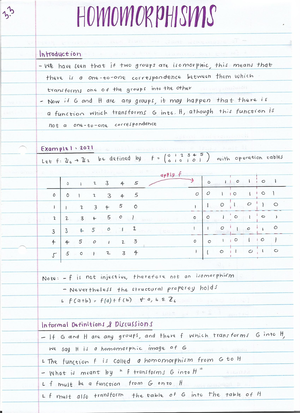 3.3
HOMOMORPHISMS
Introduction
- We have seen that if two groups are isomorphic, this means that
there is a one-to-one correspondence between them which
transforms one of the groups into the other
- Now if G and H are any groups, it may happen that there is
a function which transforms G into H, although this function is
not a one-to-one correspondence
Example 1 - 2021
Let f: ℤ₆ → ℤ₂ be defined by f = (0 1 2 3 4 5
0 1 0 1 0 1) with operation tables
apply f
0 1 2 3 4 5 0 1 0 1 0 1
0 0 1 2 3 4 5 0 0 1 0 1 0 1
1 1 2 3 4 5 0 1 1 0 1 0 1 0
2 2 3 4 5 0 1 0 0 1 0 1 0 1
3 3 4 5 0 1 2 1 1 0 1 0 1 0
4 4 5 0 1 2 3 0 0 1 0 1 0 1
5 5 0 1 2 3 4 1 1 0 1 0 1 0
Note: - f is not injective, therefore not an isomorphism
- Nevertheless the structural property holds
f(a+b) = f(a) + f(b) ∀ a, b ∈ ℤ₆
Informal Definitions & Discussions
- If G and H are any groups, and there f which transforms G into H,
we say H is a homomorphic image of G
The function f is called a homomorphism from G to H
- What is meant by "f transforms G into H"
f must be a function from G onto H
f must also transform the table of G into the table of H